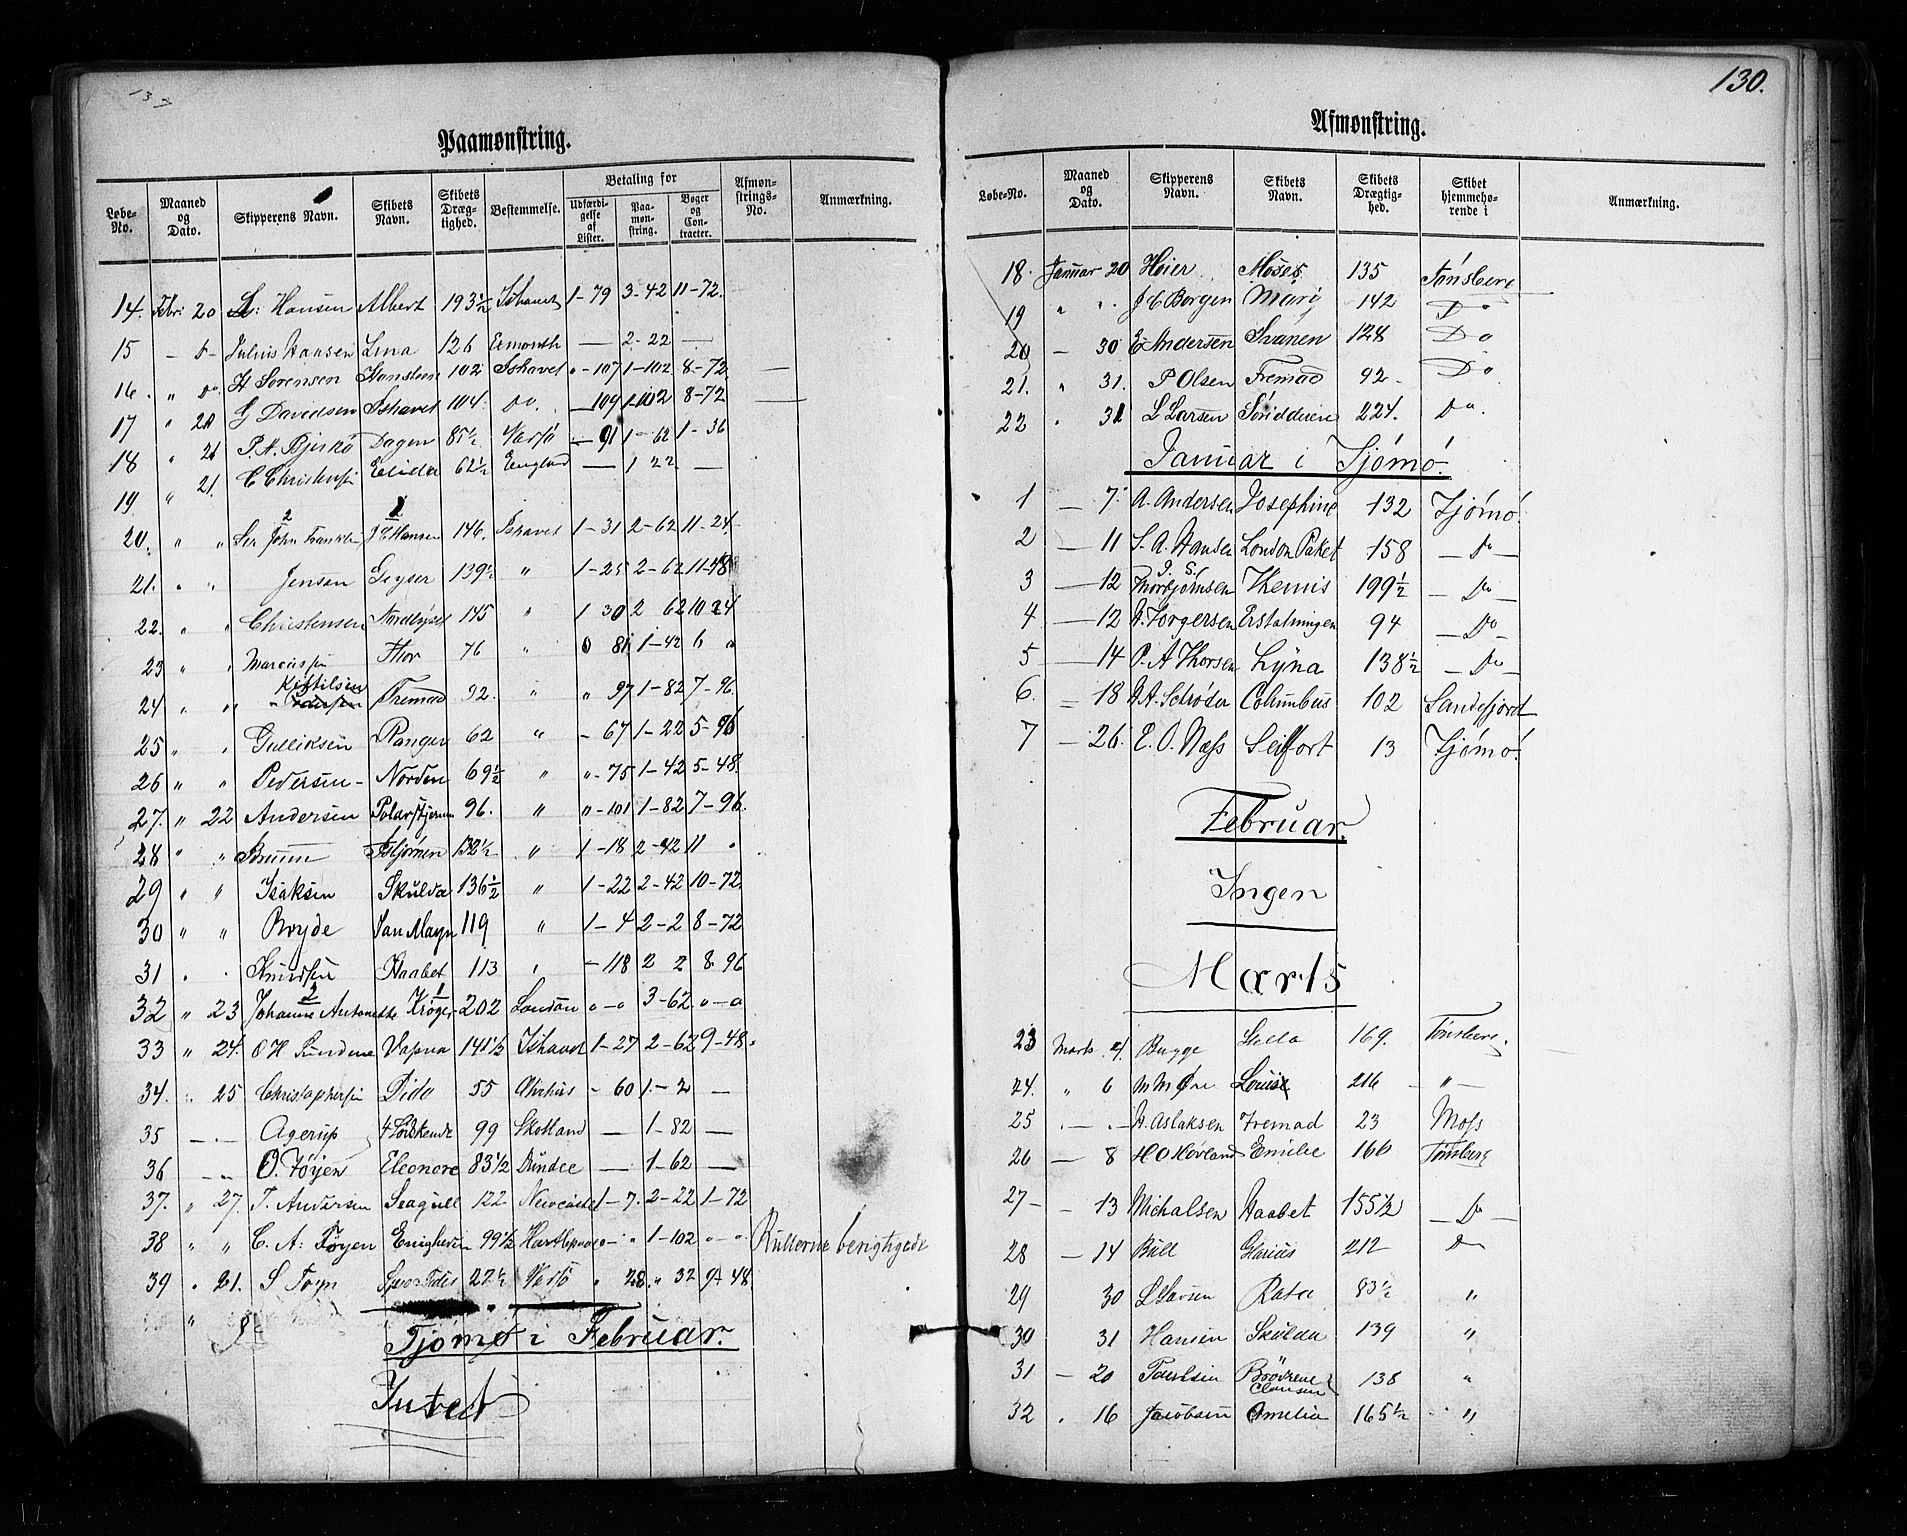 Paamønstring.
Løbe-No. Maaned og Dato. Skipperens Navn. Skibets Navn. Skibets Dræg-tighed. Bestemmelse. Betaling for Udfærdi-gelse af Lister. Paa-møn-string. Bøger og Con-tracter. Afmøn-strings-No. Anmærkning.
14. Febr: 20 Hansen Albert 193 1/2 Ishavet 1-79 3-42 11-72.
15 - D- Julius Hansen Lina 126 — 2-22 —
16. " Do H Sørensen Hansteen 102 Ishavet "-107 1-102 8-72 —
17 " 20 G Davidsen Ishavet 104. Do. -109 1-102 8-72 —
18 " 21 P.A. Bjerkø Dagen 85 1/2 -91 1-62 1-36
19 " 21. C Christensen Elida 62 1/2 England — 1 22 —
20. " " Ser John Franklin J C Hansen 146. Ishavet 1-31 2-62 11-24.
21. " " Jensen Geyser 139 1/2 " 1-25 2-62 11-48
22. " " Christensen Nordlyset 145 " 1 30 2 62 10 24
23 " " Marcussen Thor 76 " 0 81 1-42 6 "
24 " " Kittilsen Fremad 92. " " 97 1-82 7-96.
25 " " Gulliksen Ranger 62 " - 67 1-22 5-96
26 " " Pedersen- Norden 69 1/2 " "-75 1-42 5-48.
27. " 22 Andersen Polarstjernen 96. " "-101 1-82 7-96.
28 " " Bruun Isbjørnen 132 1/2 " 1-18 2-42 11 "
29 " " Isaksen Skulda 136 1/2 " 1-22 2-42 10-72
30 " " Bryde Jan Mayn 119 " 1-4 2-2 8-72
31 . . Knudsen Haabet 113 " -118 2 2 8-96
32 " 23 Johanne Antonette Krøger 202 London "-" 3-62 "-"
33 " 24. O H Sundene Vapna 141 1/2 Ishavet 1-27 2-62 9-48.
34. " 25 Christophersen Dido 55 - 60 1-2 —
35 — Agerup 4 Södskende 99 Skotland — 1-82 —
36 O. Föyen Eleonore 83 1/2 Dundee — 1-62 —
37. " 27. T. Andersen Seagull 122 Newcastle 1-7. 2-22 1-72
38 " " C. A. Föyen Enigheden 99 1/2 Hartlepool "-" 1-102 "-" Rullerne berigtigede
39 " 21. S Foyn Spes & Fides 22 1/2 " 28 " 32 9-48
Tjømø i Februar.
Intet
130.
Afmønstring.
Løbe-No. Maaned og Dato. Skipperens Navn. Skibets Navn. Skibets Drægtig-hed. Skibet hjemmehø-rende i Anmærkning.
18. Januar 20 Høier Moses 135 Tønsberg
19 " " J C Borgen Mary 142 Do
20 — 30 E Andersen Svanen 128 Do
21. " 31. P Olsen Fremad 92 - Do
22 . 31 L Larsen 224. Do.
Januar i Tjømø.
1 — 7. A. Andersen Josephine 132 Tjømø.
2 — 11 S. A. Hansen London Paket 158 — Do —
3 — 12 J. S. Thorbjørnsen Themis 199 1/2 — Do —
4 — 12 A. Torgersen Erstatningen 94 — Do —
5 — 14 P. A Thorsen Lyna 138 1/2 — Do —
6. — 18 A. A. Schrøder Columbus 102 Sandefjord
7 — 26. E. O. Næss Seiffort 13 Tjømø.
Februar.
Ingen
Marts
23 Marts 4. Bugge Stella 169. Tønsberg.
24. " 6 M M Øre Louise 216 — " —
25 . — . — A. Aslaksen Fremad 23 Moss
26 — 8 H O Hovland Emilie 166 Tønsberg
27 — — 13 Michalsen Haabet 155 1/2 — Do —
28 — 14 Bull Glorius 212 Do
29 30 L Larsen Rota 83 1/2 "
30 31 Hansen Skulda 139 "
31 — 20 Brødrene Clausen 138 "
32 . 16 Jacobsen Amelia 165 1/2 "